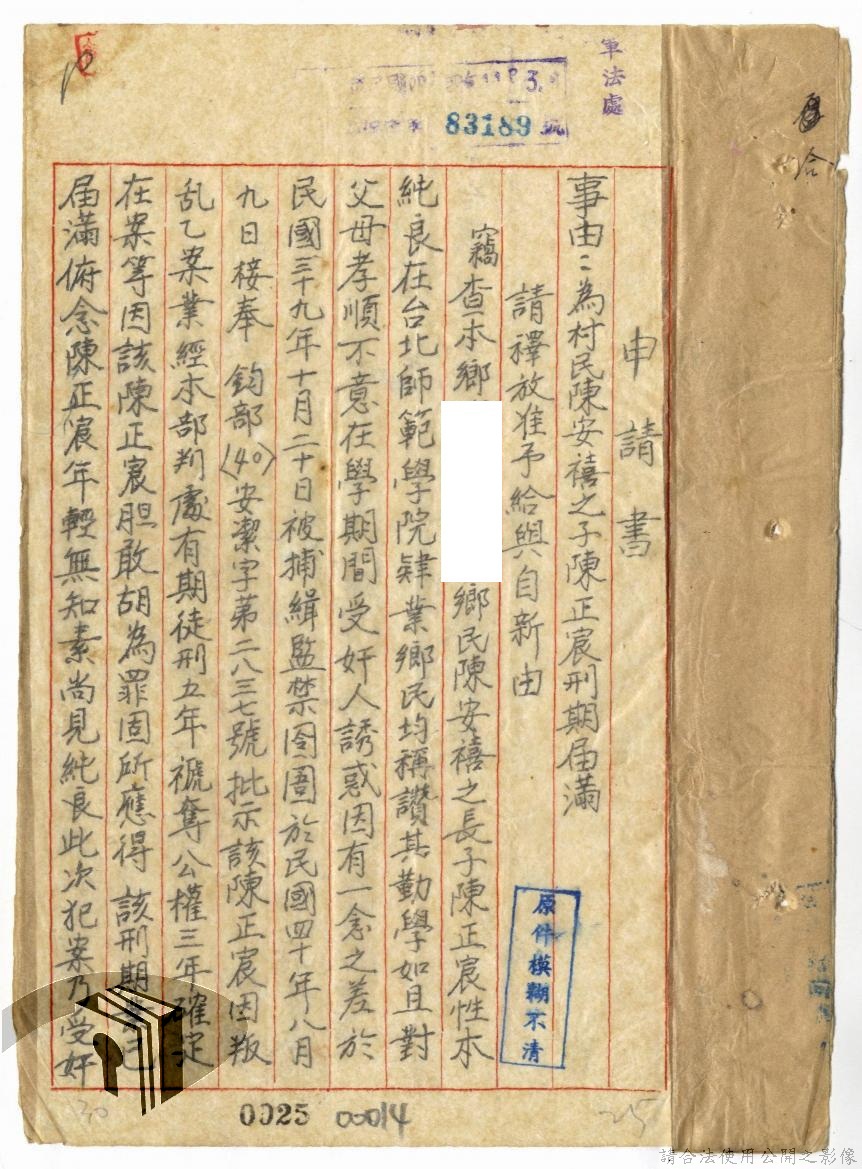 申請書
事由：為村民陳安禧之子陳正宸刑期届滿
請釋放准予給與自新由
竊查本鄉 鄉民陳安禧之長子陳正宸性本
純良在台北師範學院肄業鄉民均稱讚其勤學如且對
父母孝順不意在學期間受奸人誘惑因有一念之差於
民國三十九年十月二十日被捕緝監禁囹圄於民國四十年八月
九日接奉 鈞部〈40〉安潔字第二八三七號批示該陳正宸因叛
乱乙案業經本部判處有期徒刑五年褫奪公權三年確定
在案等因該陳正宸胆敢胡為罪固所應得 該刑期已
届滿俯念陳正宸年輕無知素尚見純良此次犯案乃受奸
軍法處
83189 號
原件模糊不清
0025
00014
25
30
請合法使用公開之影像